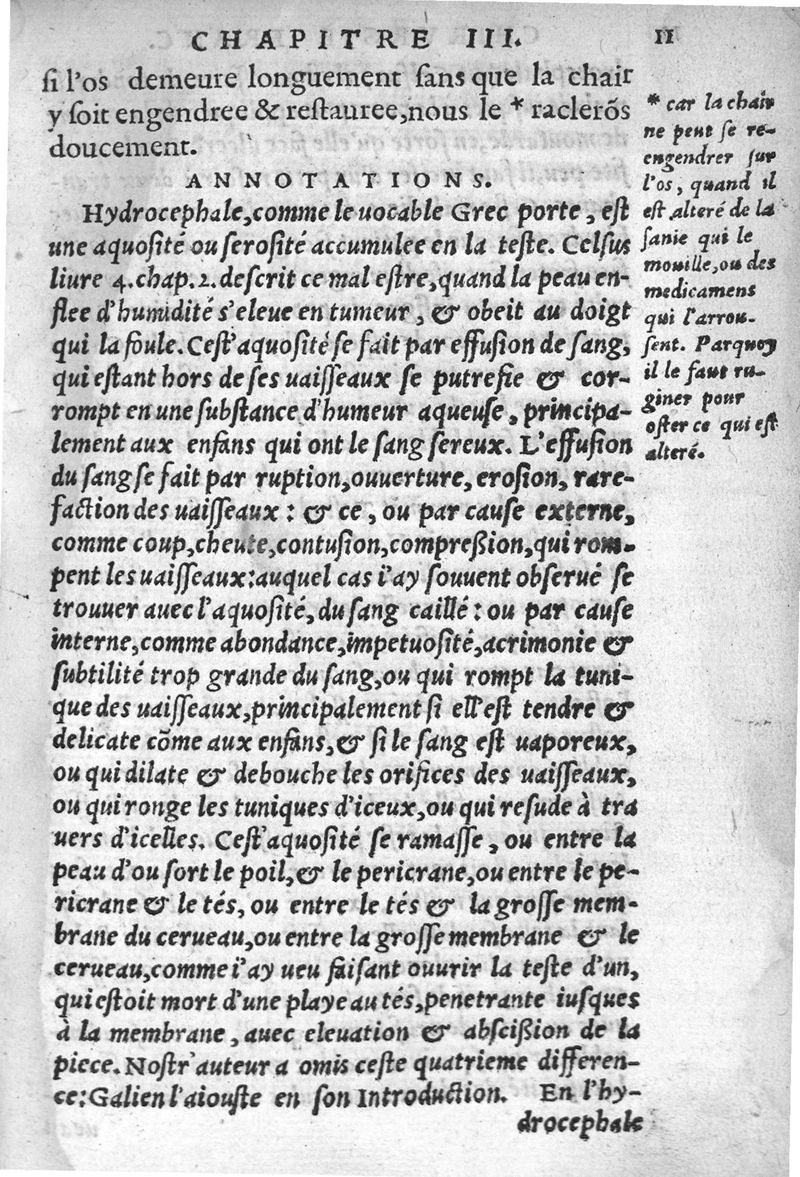 CHAPITRE III. 11
si l'os demeure longuement sans que la chair
y soit engendree & restauree, nous le * raclerõs
doucement.
ANNOTATIONS.
Hydrocephale, comme le uocable Grec porte, est
une aquosité ou serosité accumulee en la teste. Celsus
liure 4. chap. 2. descrit ce mal estre, quand la peau en-
flee d'humidité s'eleue en tumeur, & obeit au doigt
qui la foule. Cest' aquosité se fait par effusion de sang,
qui estant hors de ses uaisseaux se putrefie & cor-
rompt en une substance d'humeur aqueuse, principa-
lement aux enfans qui ont le sang sereux. L'effusion
du sang se fait par ruption, ouuerture, erosion, rare-
faction des uaisseaux: & ce, ou par cause externe,
comme coup, cheute, contusion, compreßion, qui rom-
pent les uaisseaux: auquel cas i'ay souuent obserué se
trouuer auec l'aquosité, du sang caillé: ou par cause
interne, comme abondance, impetuosité, acrimonie &
subtilité trop grande du sang, ou qui rompt la tuni-
que des uaisseaux, principalement si ell' est tendre &
delicate cõme aux enfans, & si le sang est uaporeux,
ou qui dilate & debouche les orifices des uaisseaux,
ou qui ronge les tuniques d'iceux, ou qui resude à tra
uers d'icelles. Cest' aquosité se ramasse, ou entre la
peau d'ou sort le poil, & le pericrane, ou entre le pe-
ricrane & le tés, ou entre le tés & la grosse mem-
brane du cerueau, ou entre la grosse membrane & le
cerueau, comme i'ay ueu faisant ouurir la teste d'un,
qui estoit mort d'une playe au tés, penetrante iusques
à la membrane, auec eleuation & abscißion de la
piece. Nostr' auteur a omis ceste quatrieme differen-
ce: Galien l'aiouste en son Introduction. En l'hy-
drocephale
* car la chair
ne peut se re-
engendrer sur
l'os, quand il
est alteré de la
sanie qui le
mouille, ou des
medicamens
qui l'arrou-
sent. Parquoy
il le faut ru-
giner pour
oster ce qui est
alteré.